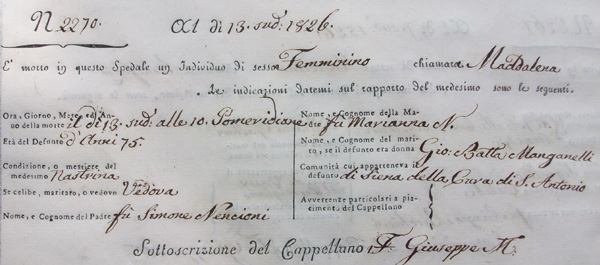 N 2270. Al di 13. sud.º 1826.
E' morto in questo Spedale un Individuo di sesso Femminino chiamata Maddalena
Le indicazioni datemi sul rapporto del medesimo sono le seguenti.
Ora, Giorno, Mese, ed Anno della morte il dì 13. sud.º alle 10. Pomeridiane
Età del Defunto d'Anni 75.
Condizione, o mestiere del medesimo Nastrina
Se celibe, maritato, o vedovo Vedova
Nome, e Cognome del Padre fù Simone Nencioni
Nome, e Cognome della Madre fù Marianna N.
Nome, e Cognome del marito, se il defunto era donna Gio: Batta Manganelli
Comunità cui apparteneva il defunto di Siena della Cura di S. Antonio
Avvertenze particolari a piacimento del Cappellano
Sottoscrizione del Cappellano F. Giuseppe M.